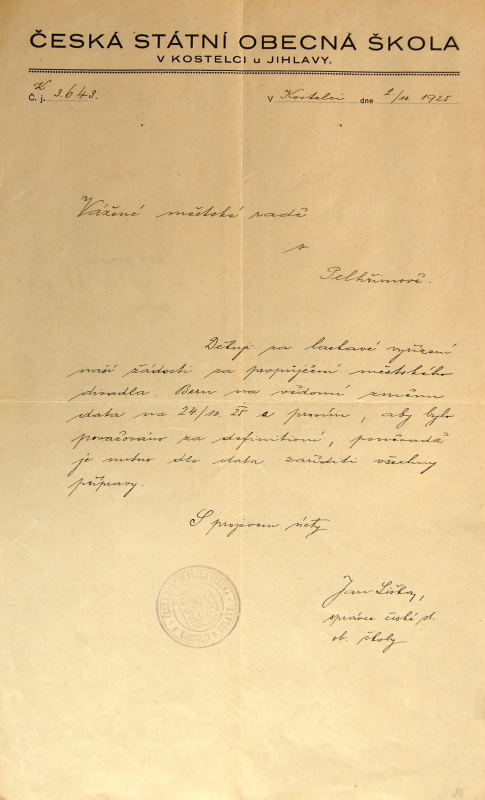 ČESKÁ STÁTNÍ OBECNÁ ŠKOLA
V KOSTELCI u JIHLAVY.
K
Č. j. 3643.
V Kostelci dne 2/10. 1925
Vážené městské radě
v
Pelhřimově.
Děkuji za laskavé vyřízení
naší žádosti za propůjčení městského
divadla. Beru na vědomí změnu
data na 24/10. 25 a prosím, aby bylo
považováno za definitivní, poněvadž
je nutno dle data zaříditi všechny
přípravy.
S projevem úcty
Jan Liška,
správce české st.
ob. školy